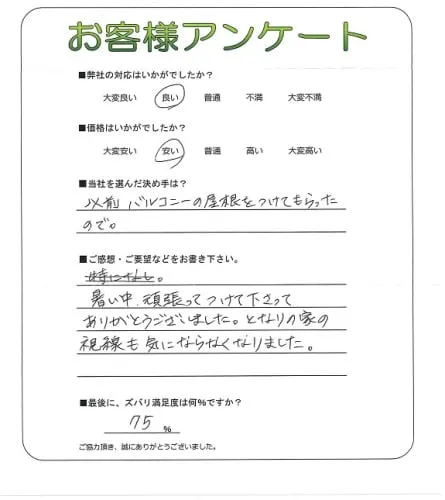 お客様アンケート
■弊社の対応はいかがでしたか？
大変良い 良い 普通 不満 大変不満
■価格はいかがでしたか？
大変安い 安い 普通 高い 大変高い
■当社を選んだ決め手は？
以前 バルコニーの屋根をつけてもらった
ので。
■ご感想・ご要望などをお書き下さい。
特になし。
暑い中、頑張ってつけて下さって
ありがとうございました。となりの家の
視線も気にならなくなりました。
■最後に、ズバリ満足度は何%ですか？
75 %
ご協力頂き、誠にありがとうございました。